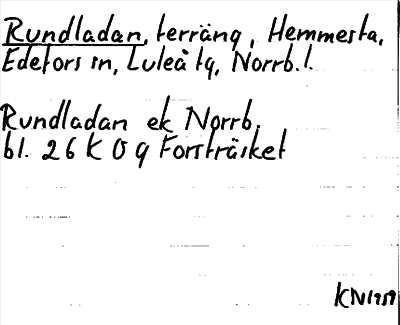 Rundladan, terräng, Hemmesta,
Edefors sn, Luleå tg, Norrb. l.
Rundladan ek Norrb.
bl. 26 K 0 g Forsträsket
KN 1959